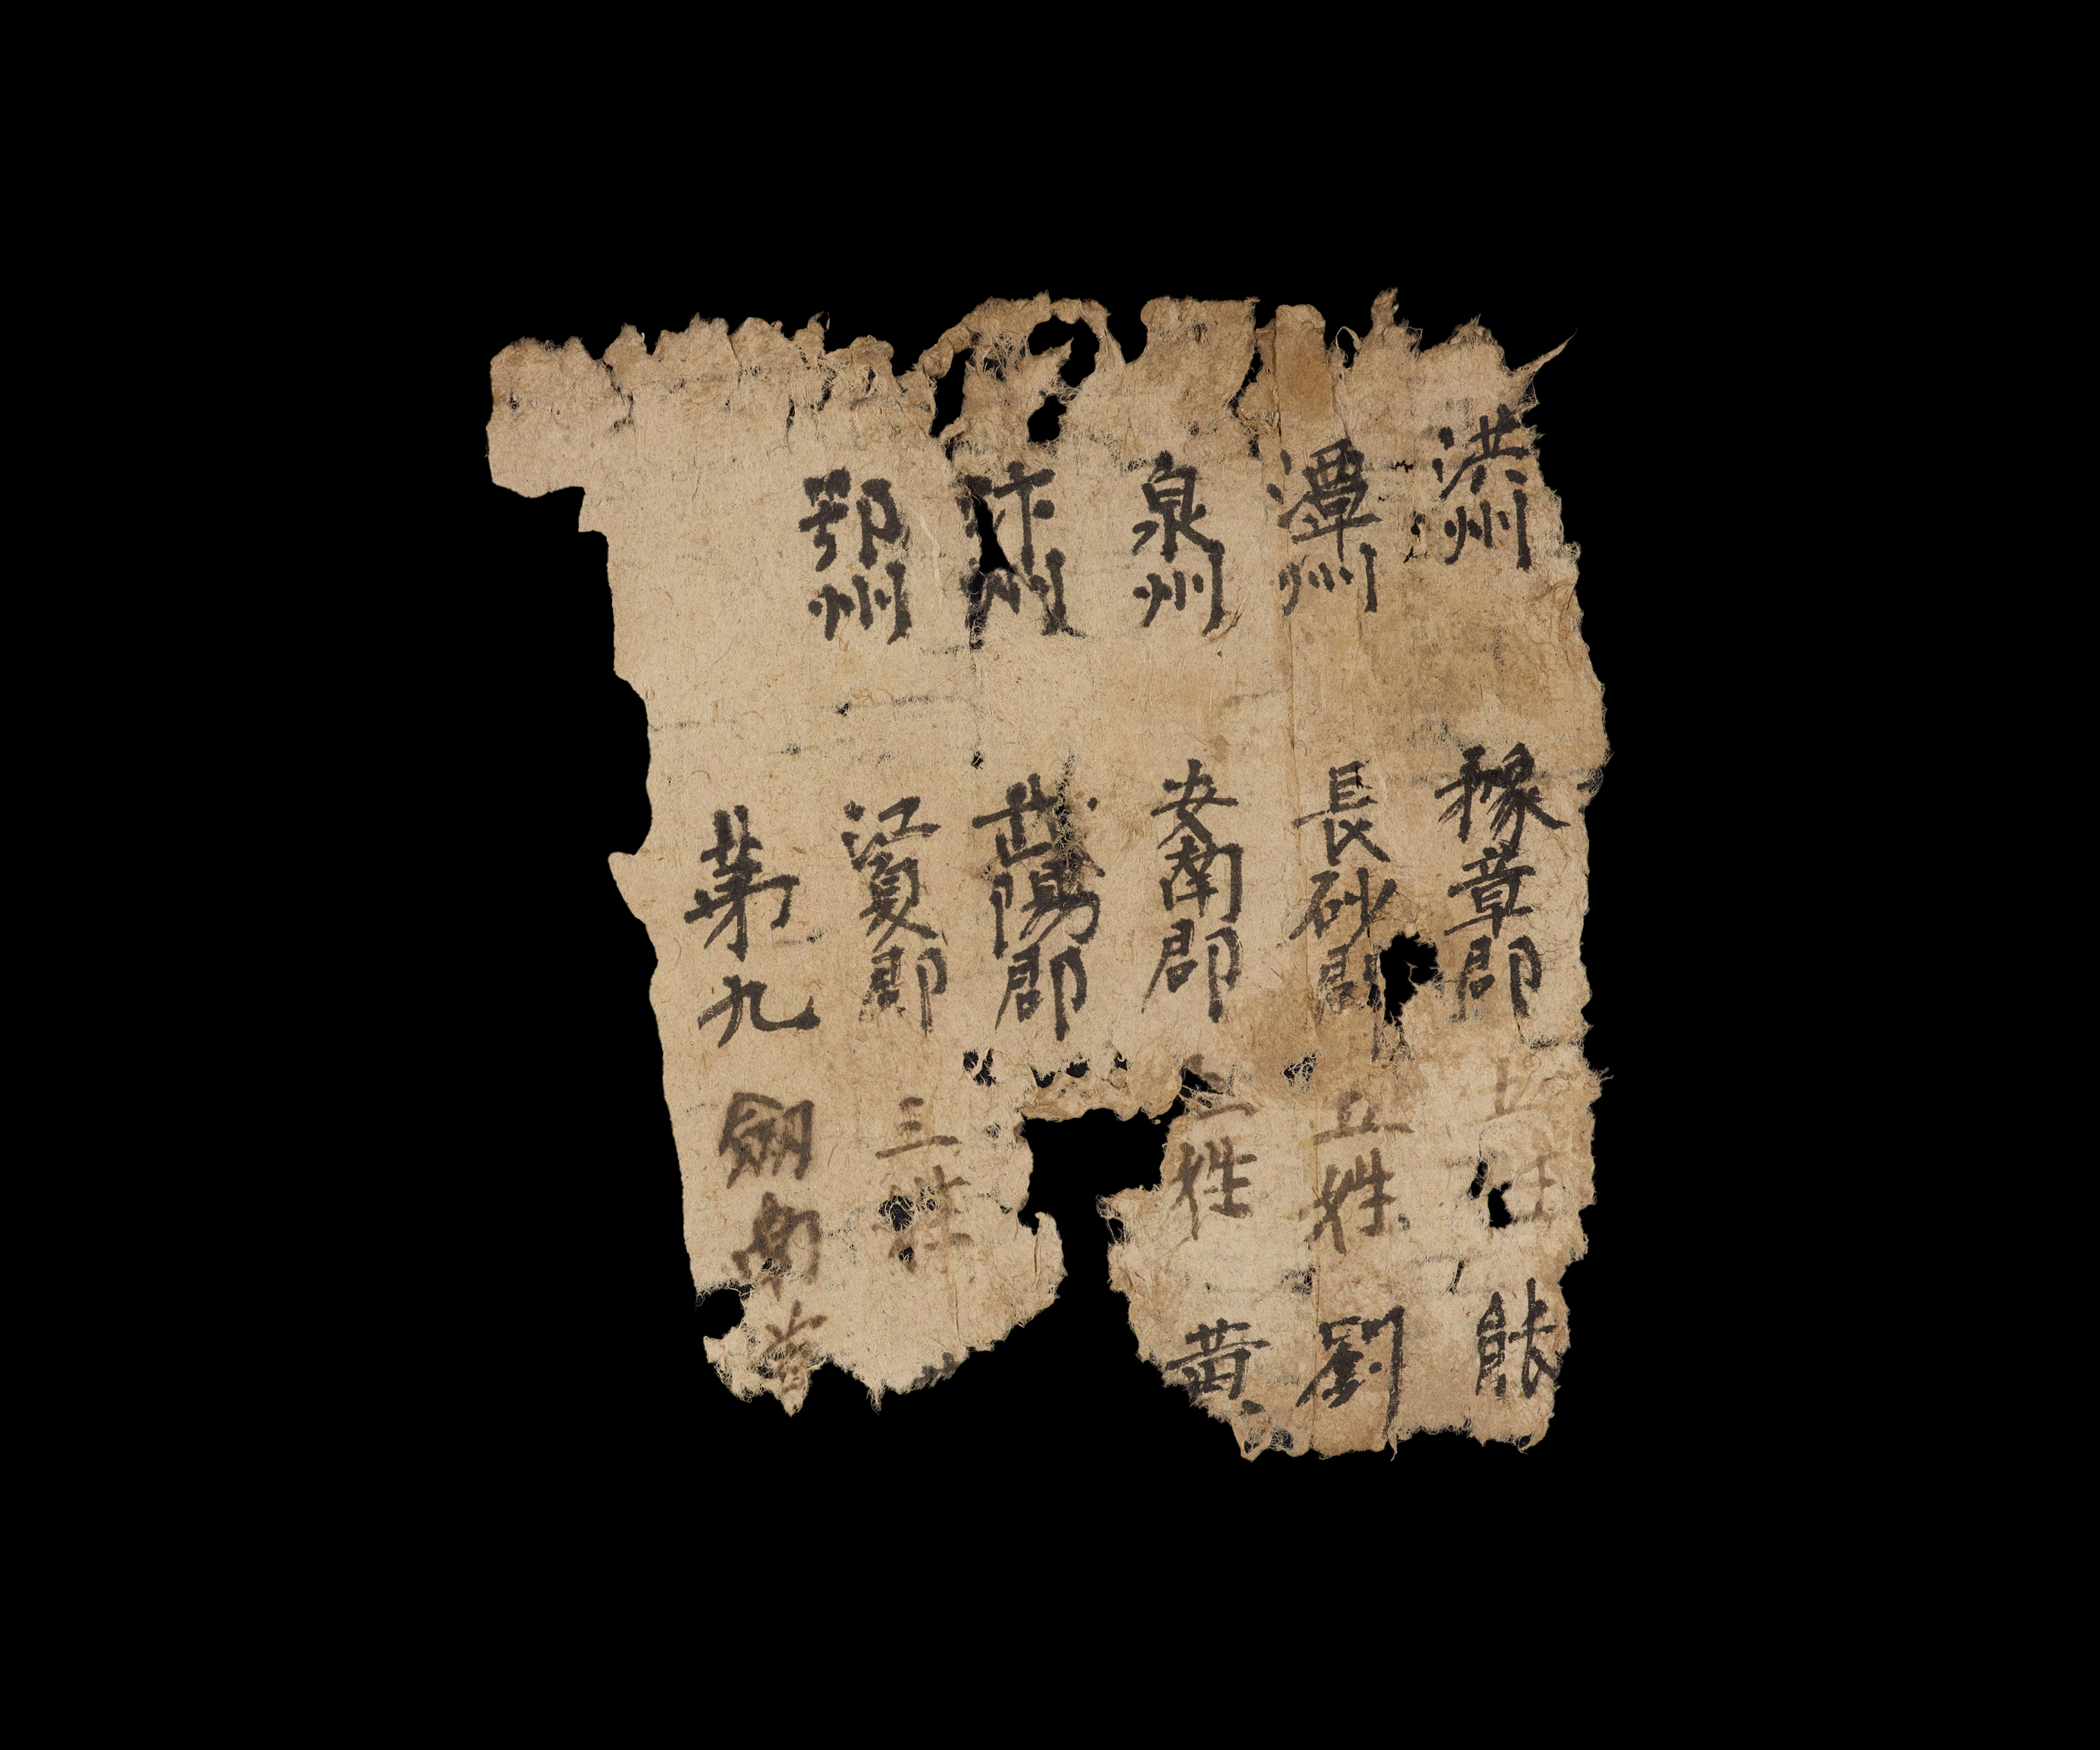 洪州 豫章郡 五姓 熊
潭州 長砂郡 五姓 劉
泉州 安南郡 姓 黄
汴州 陽郡
鄂州 江夏郡 三姓
苐九 劒南